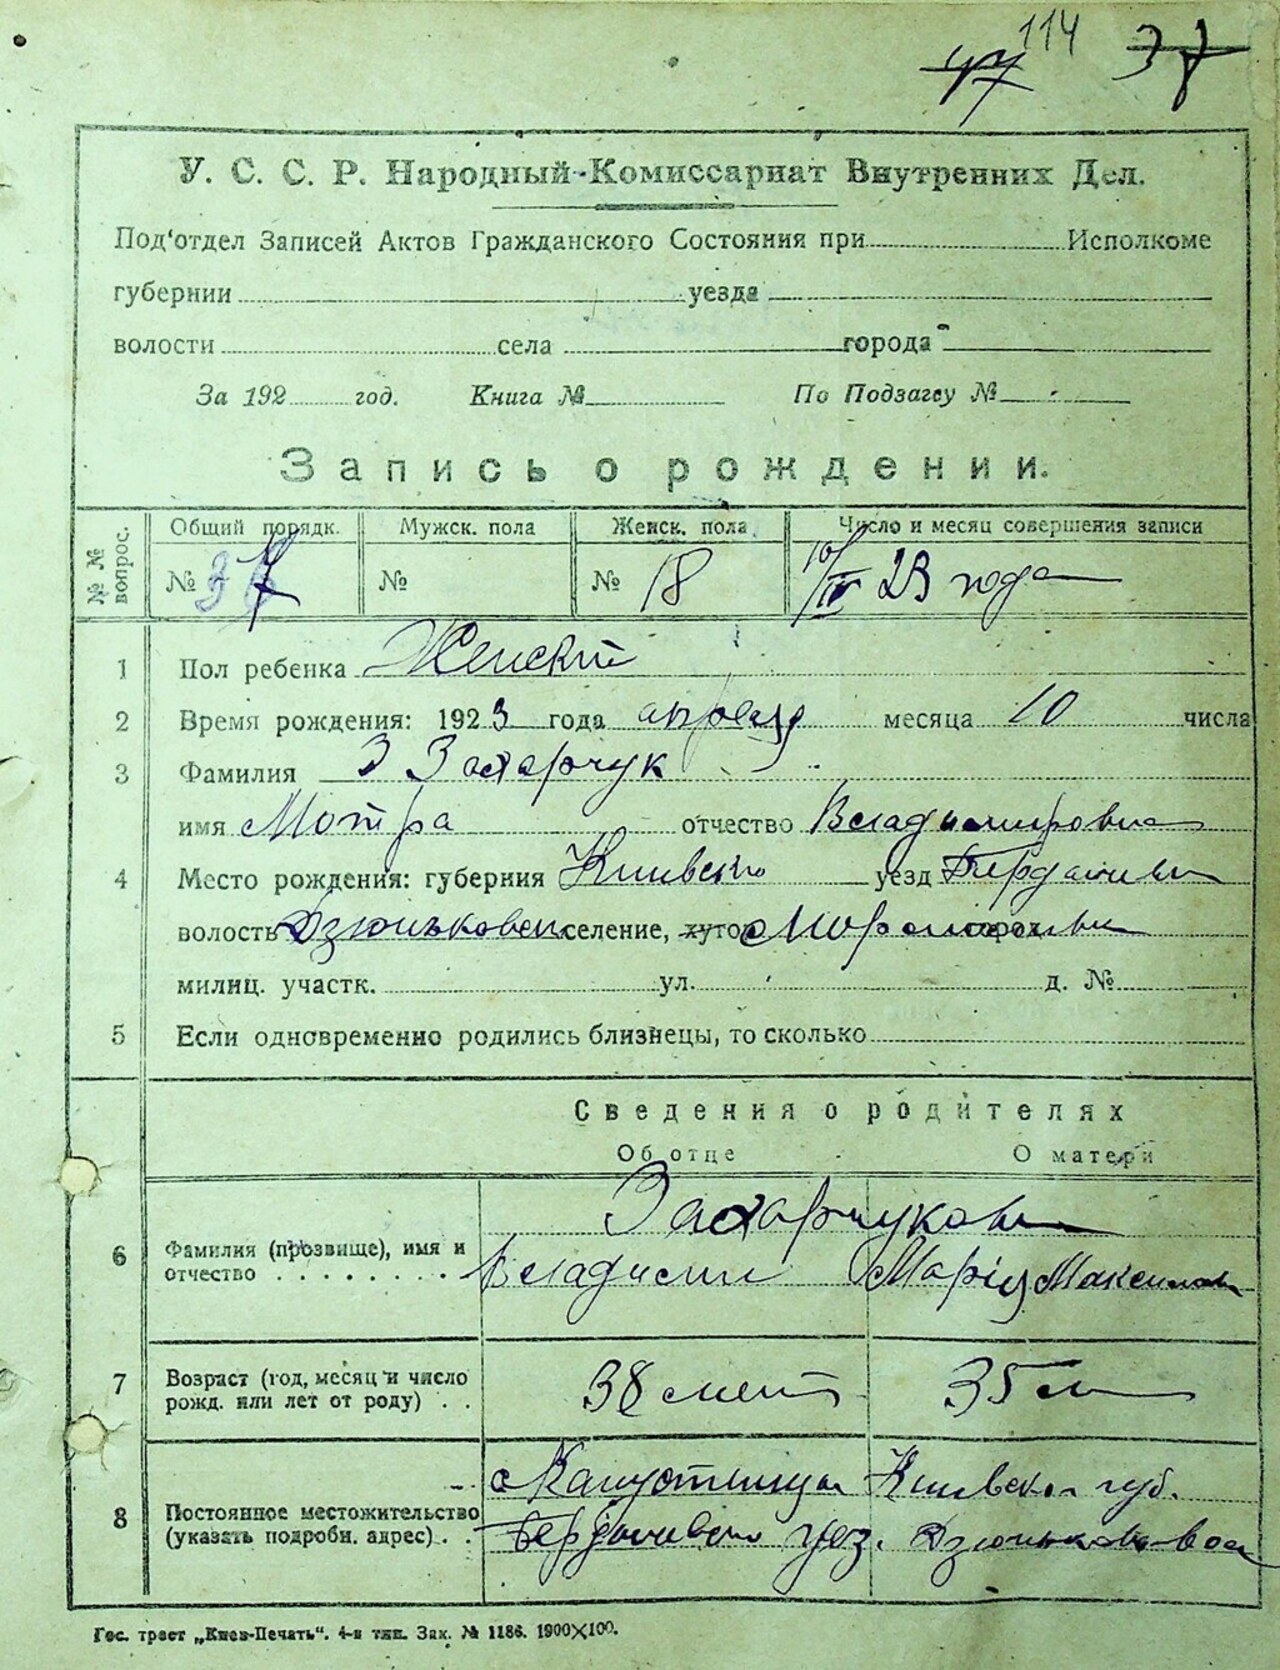 114
47 37
У. С. С. Р. Народный-Комиссариат Внутренних Дел.
Под'отдел Записей Актов Гражданского Состояния при Исполкоме
губернии уезда
волости села города
За 192 год. Книга № По Подзагсу №
Запись о рождении.
№ № вопрос. Общий порядк. Мужск. пола Женск. пола Число и месяц совершения записи
№ 37 № № 18 10/IV 23 года
1 Пол ребенка Женский
2 Время рождения: 1923 года апреля месяца 10 числа
3 Фамилия З Захарчук
имя Мотра отчество Владимировна
4 Место рождения: губерния Киевско уезд Бердичевск
волость Дзюньковск селение, хутор город
милиц. участк. ул. д. №
5 Если одновременно родились близнецы, то сколько
Сведения о родителях
Об отце О матери
Захарчукови
6 Фамилия (прозвище), имя и
отчество . . . . . . . . Владисил Марія Максимов
7 Возраст (год, месяц и число
рожд. или лет от роду) . . 38 лет 35 л
с Капустинцы Киевской губ.
8 Постоянное местожительство
(указать подробн. адрес) . . Бердичевско уез. Дзюньковск вол
Гос. трест „Киев-Печать". 4-я тип. Зак. № 1186. 1900×100.